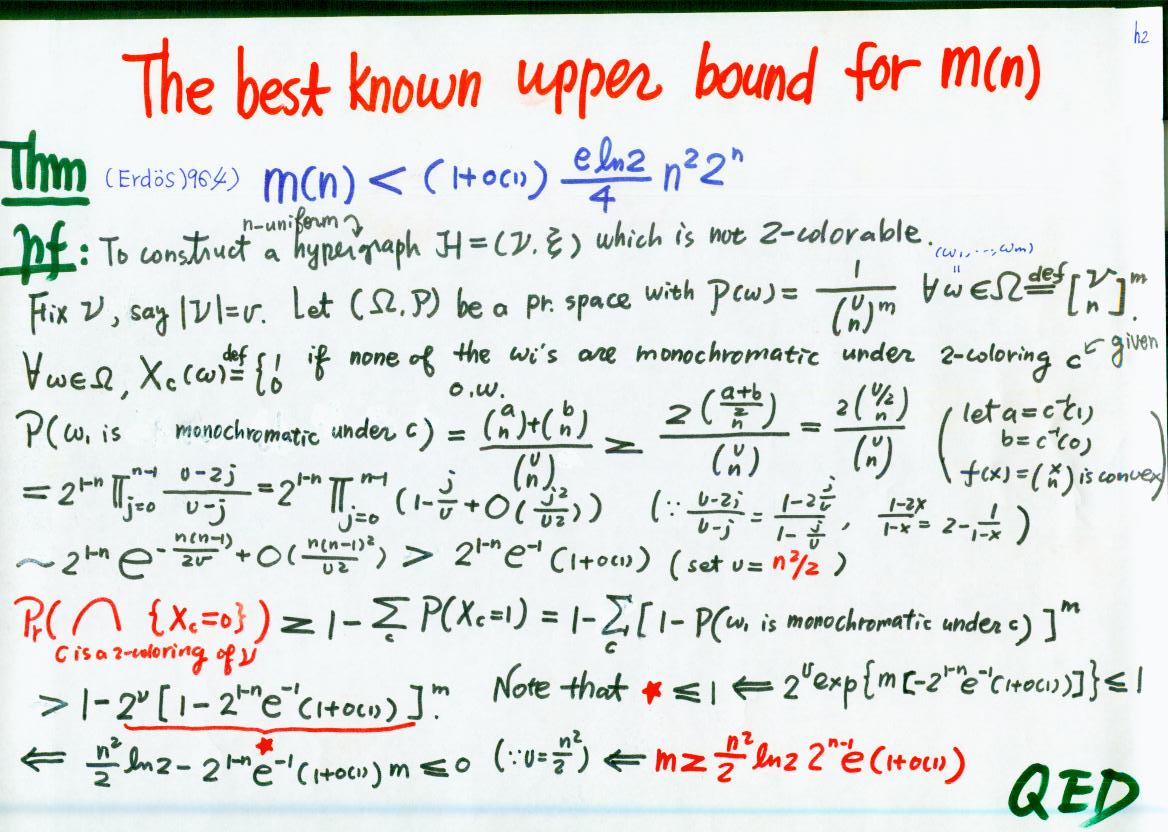 h2
The best known upper bound for m(n)
Thm (Erdös 1964) m(n) < (1+o(1)) \frac{e ln2}{4} n² 2ⁿ
pf: To construct a n-uniform hypergraph H=(V, ξ) which is not 2-colorable.
Fix V, say |V|=v. Let (Ω, P) be a pr. space with P(w) = \frac{1}{\binom{v}{n}^m} ∀ w ∈ Ω \overset{def}{=} [\binom{V}{n}]^m. (w₁, ..., w_m) = w
∀w∈Ω, X_c(w) \overset{def}{=} { 1 if none of the wi's are monochromatic under 2-coloring c ← given
0 o.w.
P(w₁ is monochromatic under c) = \frac{\binom{a}{n}+\binom{b}{n}}{\binom{v}{n}} ≥ \frac{2\binom{\frac{a+b}{2}}{n}}{\binom{v}{n}} = \frac{2\binom{v/2}{n}}{\binom{v}{n}} ( let a = c⁻¹(1)
b = c⁻¹(0)
f(x) = \binom{x}{n} is convex )
= 2^{1-n} ∏_{j=0}^{n-1} \frac{v-2j}{v-j} = 2^{1-n} ∏_{j=0}^{n-1} (1-\frac{j}{v}+O(\frac{j²}{v²})) (∵ \frac{v-2j}{v-j} = \frac{1-2\frac{j}{v}}{1-\frac{j}{v}}, \frac{1-2x}{1-x} = 2-\frac{1}{1-x})
~ 2^{1-n} e^{-\frac{n(n-1)}{2v}+O(\frac{n(n-1)²}{v²})} > 2^{1-n} e^{-1} (1+o(1)) (set v = n²/2)
Pr( ∩ {X_c=0}) ≥ 1 - Σ_c P(X_c=1) = 1 - Σ_c [1 - P(w₁ is monochromatic under c)]^m
c is a 2-coloring of V
> 1 - 2^v [1 - 2^{1-n} e^{-1} (1+o(1))]^m. Note that ★ ≤ 1 ⇐ 2^v exp{m[-2^{1-n} e^{-1} (1+o(1))]} ≤ 1
★
⇐ \frac{n²}{2} ln2 - 2^{1-n} e^{-1} (1+o(1)) m ≤ 0 (∵ v = \frac{n²}{2}) ⇐ m ≥ \frac{n²}{2} ln2 2^{n-1} e (1+o(1))
QED